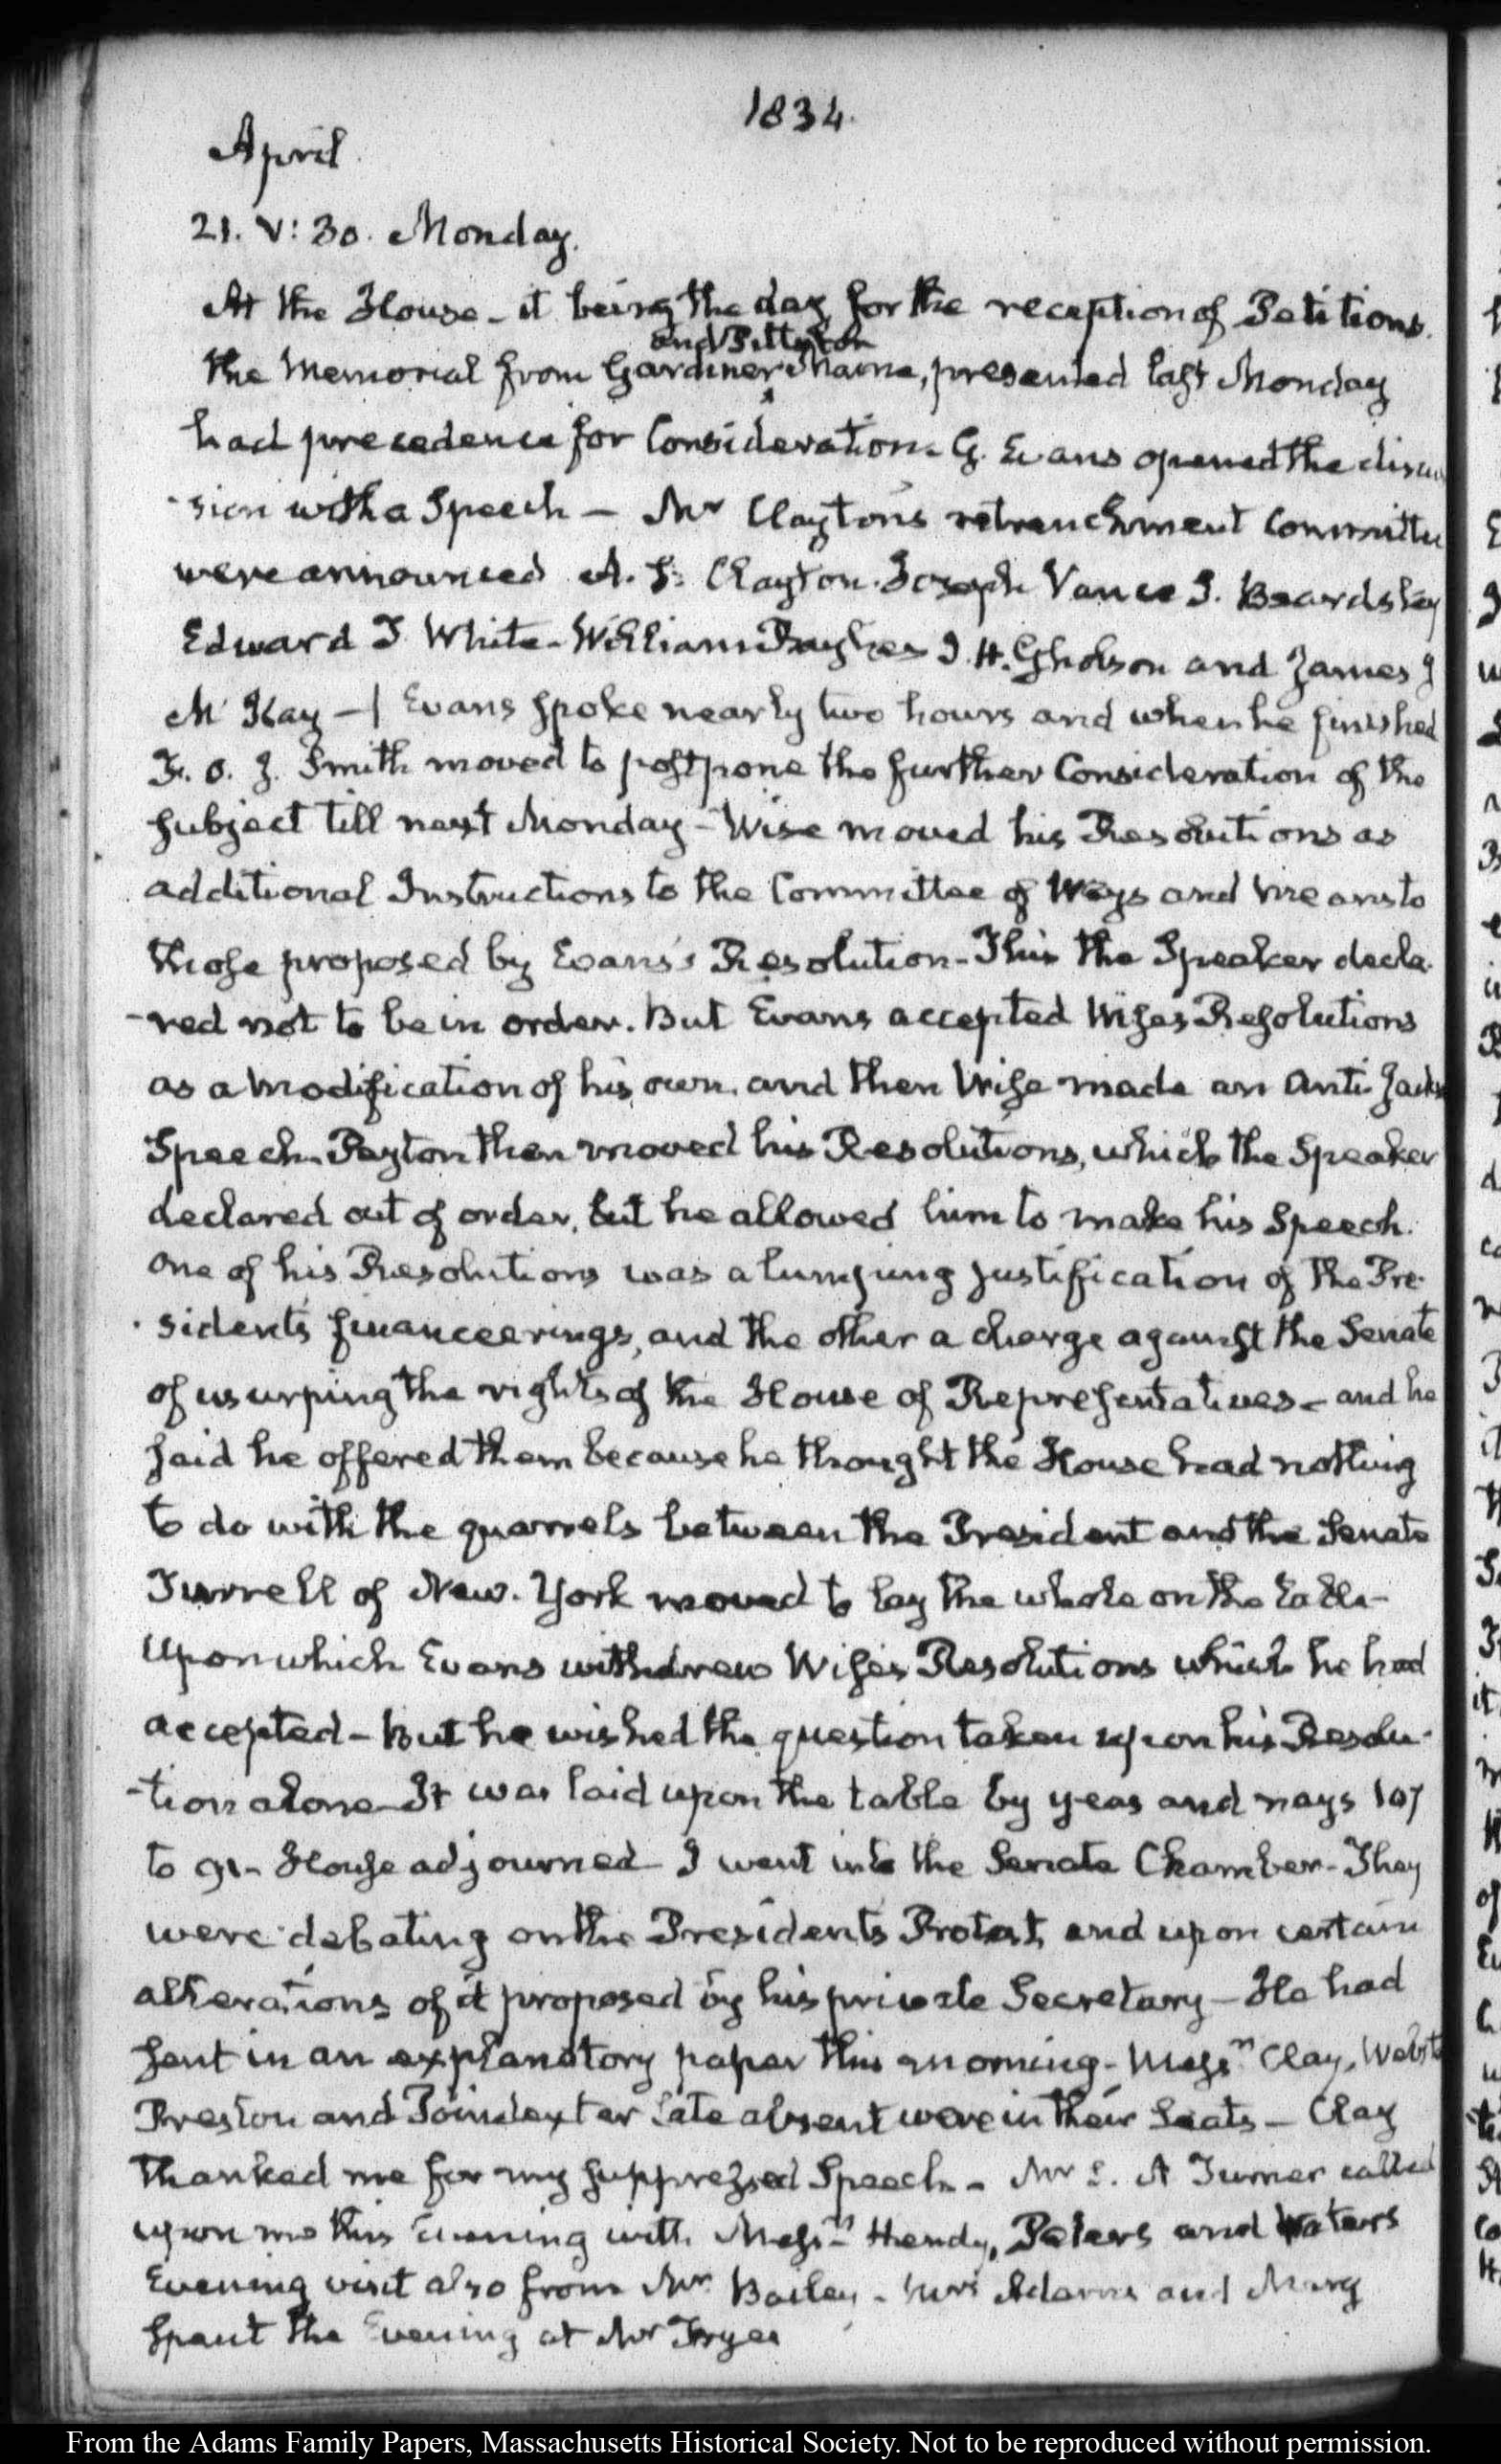 1834.
April.
21. V: 30. Monday.
At the House - it being the day for the reception of Petitions.
and Pittston
the Memorial from Gardiner Maine, presented last Monday
had precedence for Consideration. G. Evans opened the discus
-sion with a Speech - Mr Clayton's retrenchment Committee
were announced A. S. Clayton. Joseph Vance S. Beardsley
Edward D White - William J. H. Gholson and James J
Mc Kay - | Evans spoke nearly two hours and when he finished
F. O. J. Smith moved to postpone the further Consideration of the
subject till next Monday - Wise moved his Resolutions as
additional Instructions to the Committee of Ways and Means to
those proposed by Evans's Resolution - This the Speaker decla-
-red not to be in order. But Evans accepted Wise's Resolutions
as a modification of his own, and then Wise made an Anti Jacks
Speech. Peyton then moved his Resolutions, which the Speaker
declared out of order, but he allowed him to make his Speech.
One of his Resolutions was a lumping justification of the Pre-
-sident's financeerings, and the other a charge against the Senate
of usurping the rights of the House of Representatives - and he
said he offered them because he thought the House had nothing
to do with the quarrels between the President and the Senate
Turrell of New-York moved to lay the whole on the table -
Upon which Evans withdrew Wise's Resolutions which he had
accepted - But he wished the question taken upon his Resolu-
-tion alone - It was laid upon the table by yeas and nays 107
to 91 - House adjourned - I went into the Senate Chamber - They
were debating on the President's Protest, and upon certain
alterations of it proposed by his private Secretary - He had
sent in an explanatory paper this morning - Messrs Clay, Webst
Preston and Poindexter late absent were in their Seats - Clay
thanked me for my suppressed Speech - Mr S. A Turner called
upon me this Evening with Messrs Hendy, Peters and Waters
Evening visit also from Mr Bailey - Mrs Adams and Mary
spent the Evening at Mr Frye's
From the Adams Family Papers, Massachusetts Historical Society. Not to be reproduced without permission.